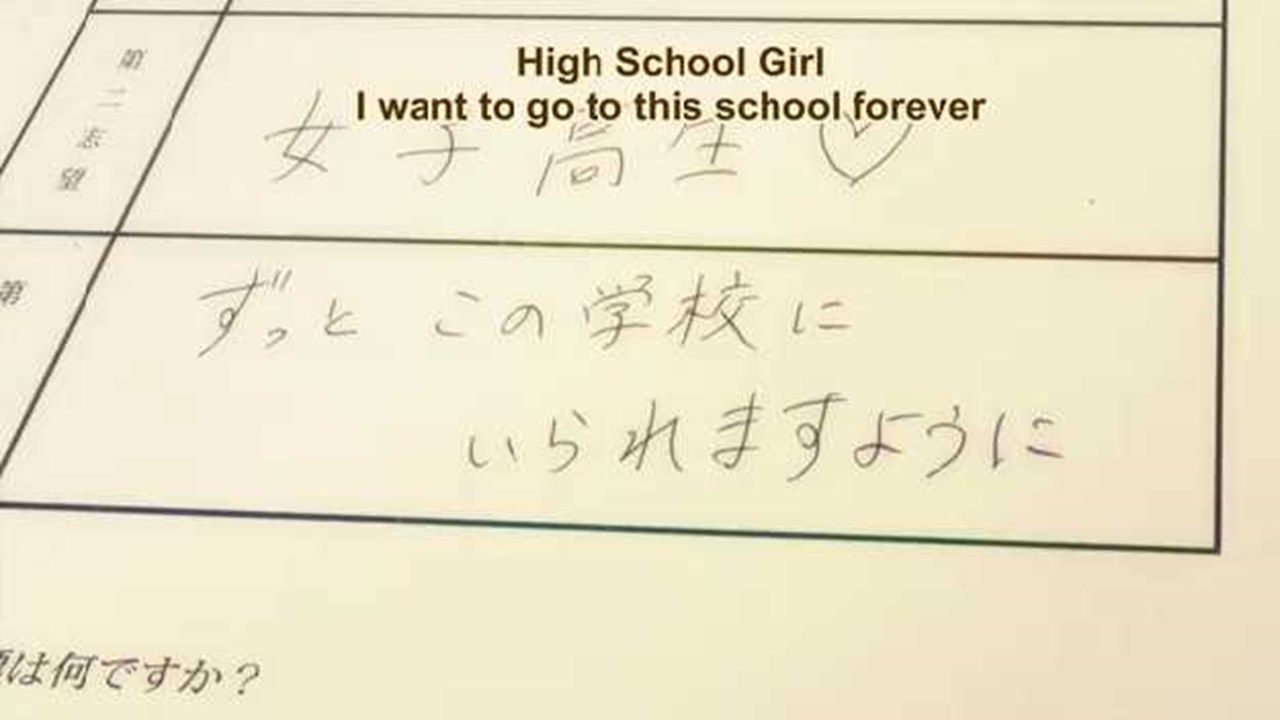 High School Girl
I want to go to this school forever
第二志望
女子高生♡
第
ずっと この学校に
いられますように
は何ですか？